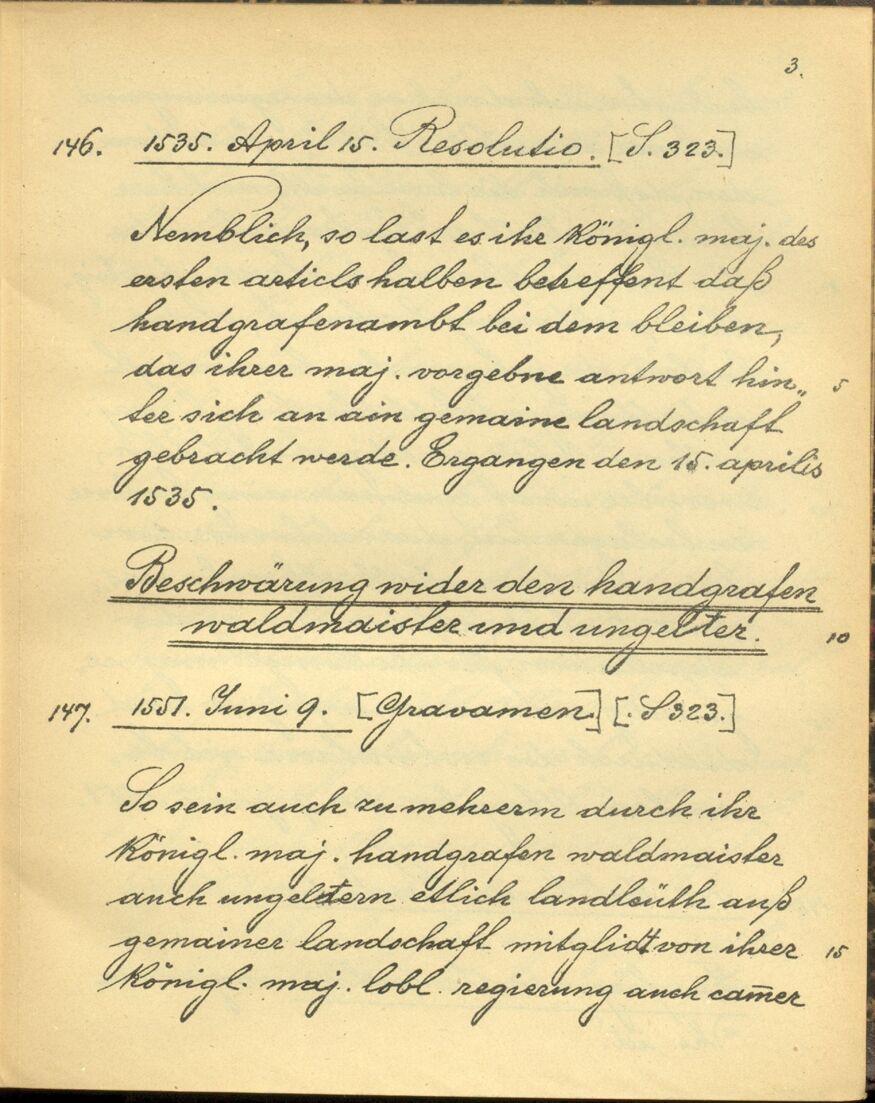 3.
146. 1535. April 15. Resolutio. [S. 323.]
Nemblich, so last es ihr Königl. maj. des
ersten articls halben betreffent daß
handgrafenambt bei dem bleiben,
das ihrer maj. vorgebne antwort hin„ 5
ter sich an ain gemaine landschaft
gebracht werde. Ergangen den 15. aprilis
1535.
Beschwärung wider den handgrafen
waldmaister und ungelter. 10
147. 1551. Juni 9. [Gravamen] [. S 323.]
So sein auch zu mehrerm durch ihr
Königl. maj. handgrafen waldmaister
auch ungeltern etlich landleüth auß
gemainer landschaft mitglidt von ihrer 15
Königl. maj. lobl. regierung auch cam̄er